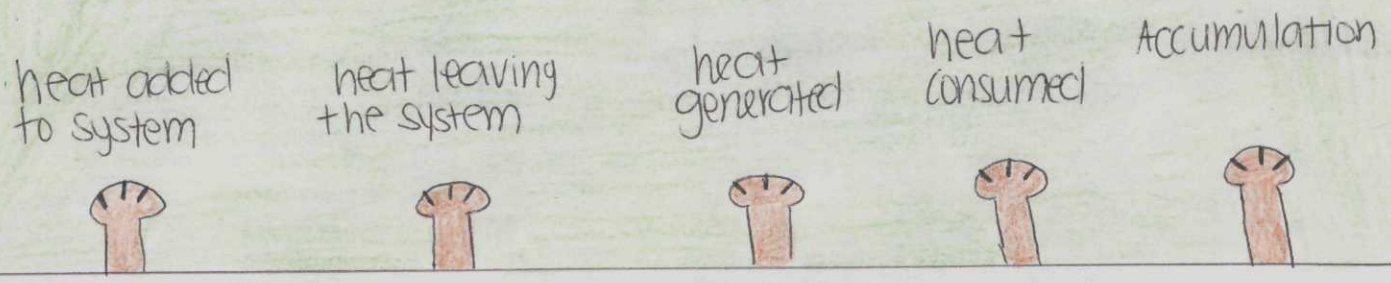 heat added
to system
heat leaving
the system
heat
generated
heat
consumed
Accumulation